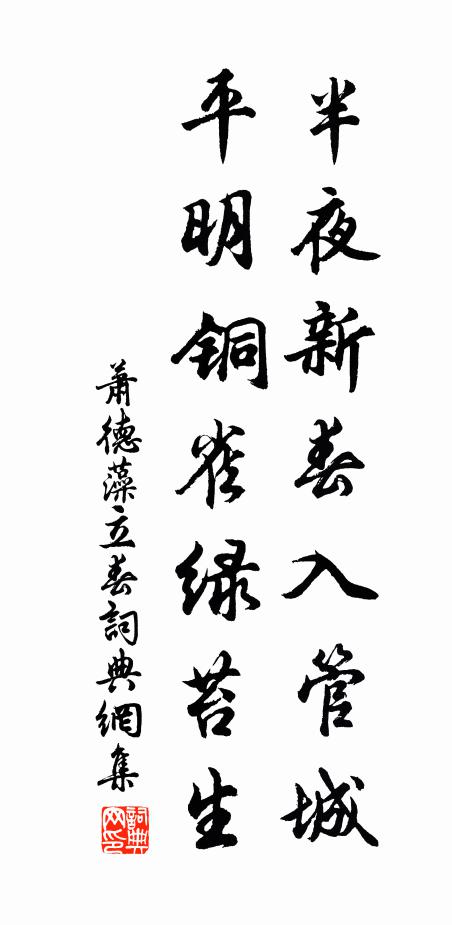 半夜新春入管城
平明铜雀绿苔生
萧德藻立春詞典網集
詞典网印